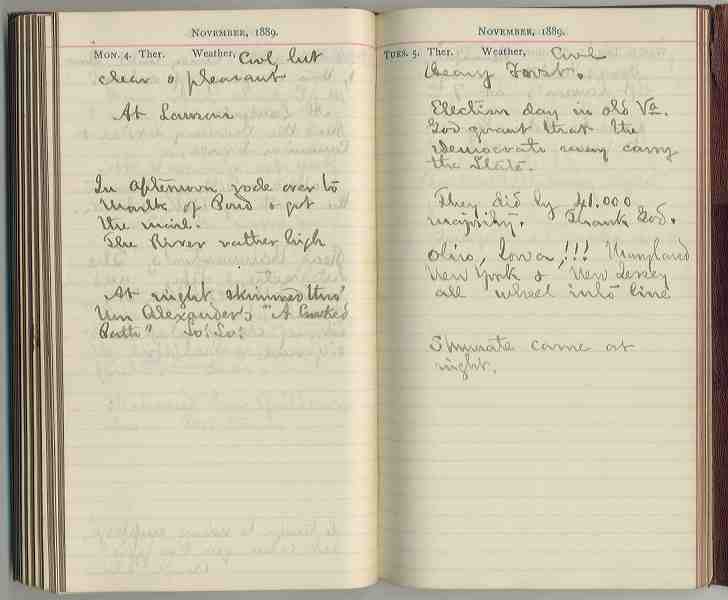 NOVEMBER, 1889.
MON. 4. Ther. Weather, Cool, but
clear & pleasant
At Lawsons
In afternoon rode over to
Mouth of Pond & got
the mail.
The River rather high
At night skimmed thro'
Mrs Alexander's "A Crooked
Path" So: So:
NOVEMBER, 1889.
TUES. 5. Ther. Weather, Cool
(heavy Frost.
Election day in old Va.
God grant that the
Democrats may carry
the State.
They did by 41.000
majority. Thank God.
Ohio, Iowa, !!! Maryland
New York & New Jersey
all wheel into line
came at
night.